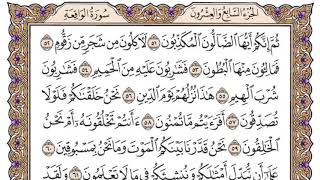 الجزء السابع والعشرون سورة الواقعة
ثُمَّ إِنَّكُمْ أَيُّهَا الضَّالُّونَ الْمُكَذِّبُونَ ٥١ لَآكِلُونَ مِن شَجَرٍ مِّن زَقُّومٍ ٥٢
فَمَالِئُونَ مِنْهَا الْبُطُونَ ٥٣ فَشَارِبُونَ عَلَيْهِ مِنَ الْحَمِيمِ ٥٤ فَشَارِبُونَ
شُرْبَ الْهِيمِ ٥٥ هَٰذَا نُزُلُهُمْ يَوْمَ الدِّينِ ٥٦ نَحْنُ خَلَقْنَاكُمْ فَلَوْلَا
تُصَدِّقُونَ ٥٧ أَفَرَأَيْتُم مَّا تُمْنُونَ ٥٨ أَأَنتُمْ تَخْلُقُونَهُ أَمْ نَحْنُ
الْخَالِقُونَ ٥٩ نَحْنُ قَدَّرْنَا بَيْنَكُمُ الْمَوْتَ وَمَا نَحْنُ بِمَسْبُوقِينَ ٦٠
عَلَىٰ أَن نُّبَدِّلَ أَمْثَالَكُمْ وَنُنشِئَكُمْ فِي مَا لَا تَعْلَمُونَ ٦١ وَلَقَدْ